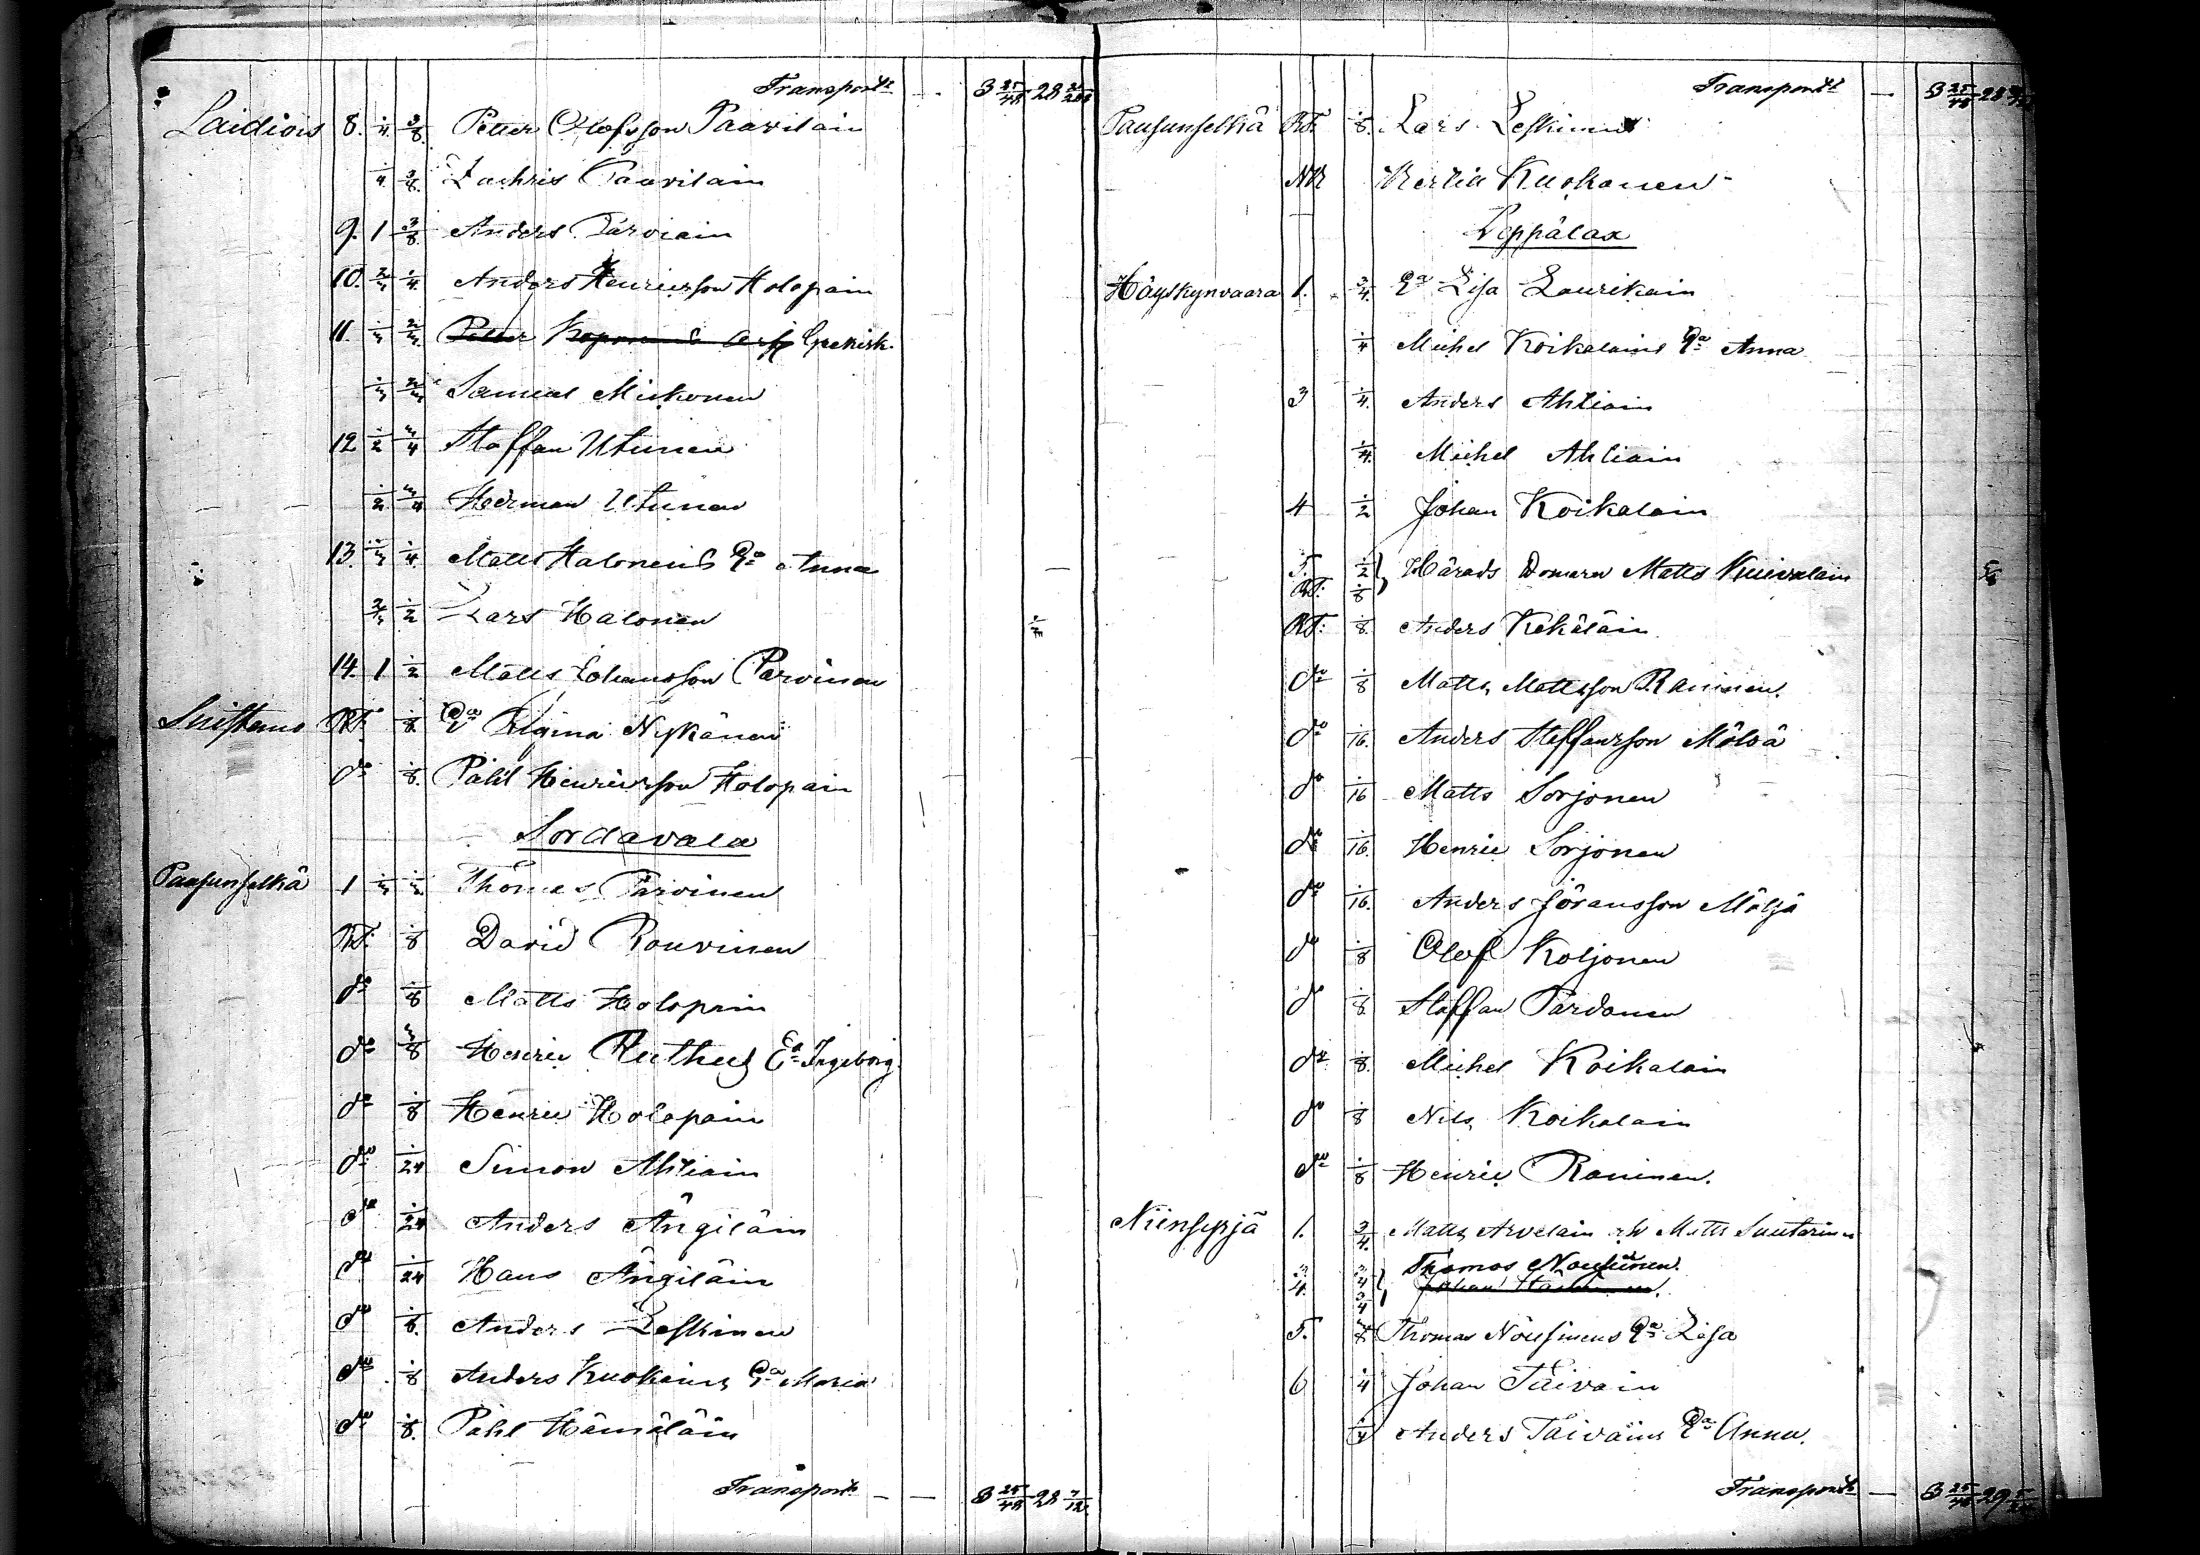 Transport — 3 25/48 28
Laidiois 8. 1/4 3/8 Petter Olofsson Paavilain
1/4 3/8. Zachris Paavilain
9. 1 3/8 Anders Parviain
10. 2/3 1/4 Anders Henricsson Holopain
11. 1/3 2/3 Petter Grekisk.
1/3 2/3 Samuel Miskonen
12 1/2 3/4 Staffan Utunen
1/2 3/4 Herman Utunen
13. 1/3 1/4 Matts Halonens Ea Anna
2/3 1/2 Lars Halonen
14. 1 1/2 Matts Johansson Parvinen
Suistamo RT. 1/8 Ea Regina Nykänen
do 1/8. Påhl Henricsson Holopain
Sordavala
Pausunselkä 1 1/3 1/3 Thomas Parvinen
RT. 1/8 David Rouvinen
do 1/8 Matts Holopain
do 3/8 Henric Ruthus Ea Ingeborg.
do 1/8 Henric Holopain
do 1/24 Simon Ahtiain
do 1/24 Anders Ängiläin
do 1/24 Hans Ängiläin
do 1/8. Anders Leskinen
do 1/8 Anders Kuokains Ea Maria
do 1/8. Påhl Hämäläin
Transport — — 3 25/48 28 7/12.
Transport — 3 25/48 28
Pausunselkä RT. 1/8. Lars Leskinen
NB Kertin Kuokonen
Leppälax
Häyskynvaara 1. 3/4. Ea Lisa Laurikain
1/4 Michel Koikalains Ea Anna
3 1/4. Anders Ahtiain
1/4. Michel Ahtiain
4 1/2 Johan Koikalain
5. 1/2 Härads Domaren Matts Kuivalain
RT: 1/8
RT: 1/8. Anders Kekäläin
do 1/8 Matts Mattsson Raninen.
do 1/16. Anders Steffansson Mölsä
do 1/16 Matts Sorjonen
do 1/16. Henric Sorjonen
do 1/16. Anders Jöransson Mölsä
do 1/8 Olof Koljonen
do 1/8 Staffan Pardonen
do 1/8. Michel Koikalain
do 1/8 Nils Koikalain
do 1/8 Henric Raninen.
Niinsyrjä 1. 3/4. Matts Arvelain och Matts Suutarinen
Thomas Nousinen.
4. 3/4 Johan
5. Thomas Nousinens Ea Lisa
6 1/4 Johan Taivain
1/4 Anders Taivains Ea Anna.
Transport — 3 25/48 29